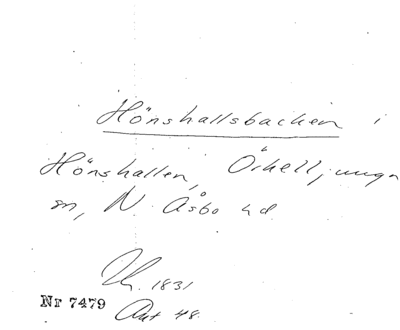 Hönshallsbacken i
Hönshallen, Örkelljunga
sn, N. Åsbo hd
1831
Nr 7479
Akt 48.